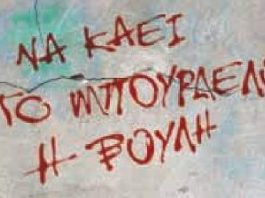 ΝΑ ΚΑΕΙ
ΤΟ ΜΠΟΥΡΔΕΛΟ
Η ΒΟΥΛΗ